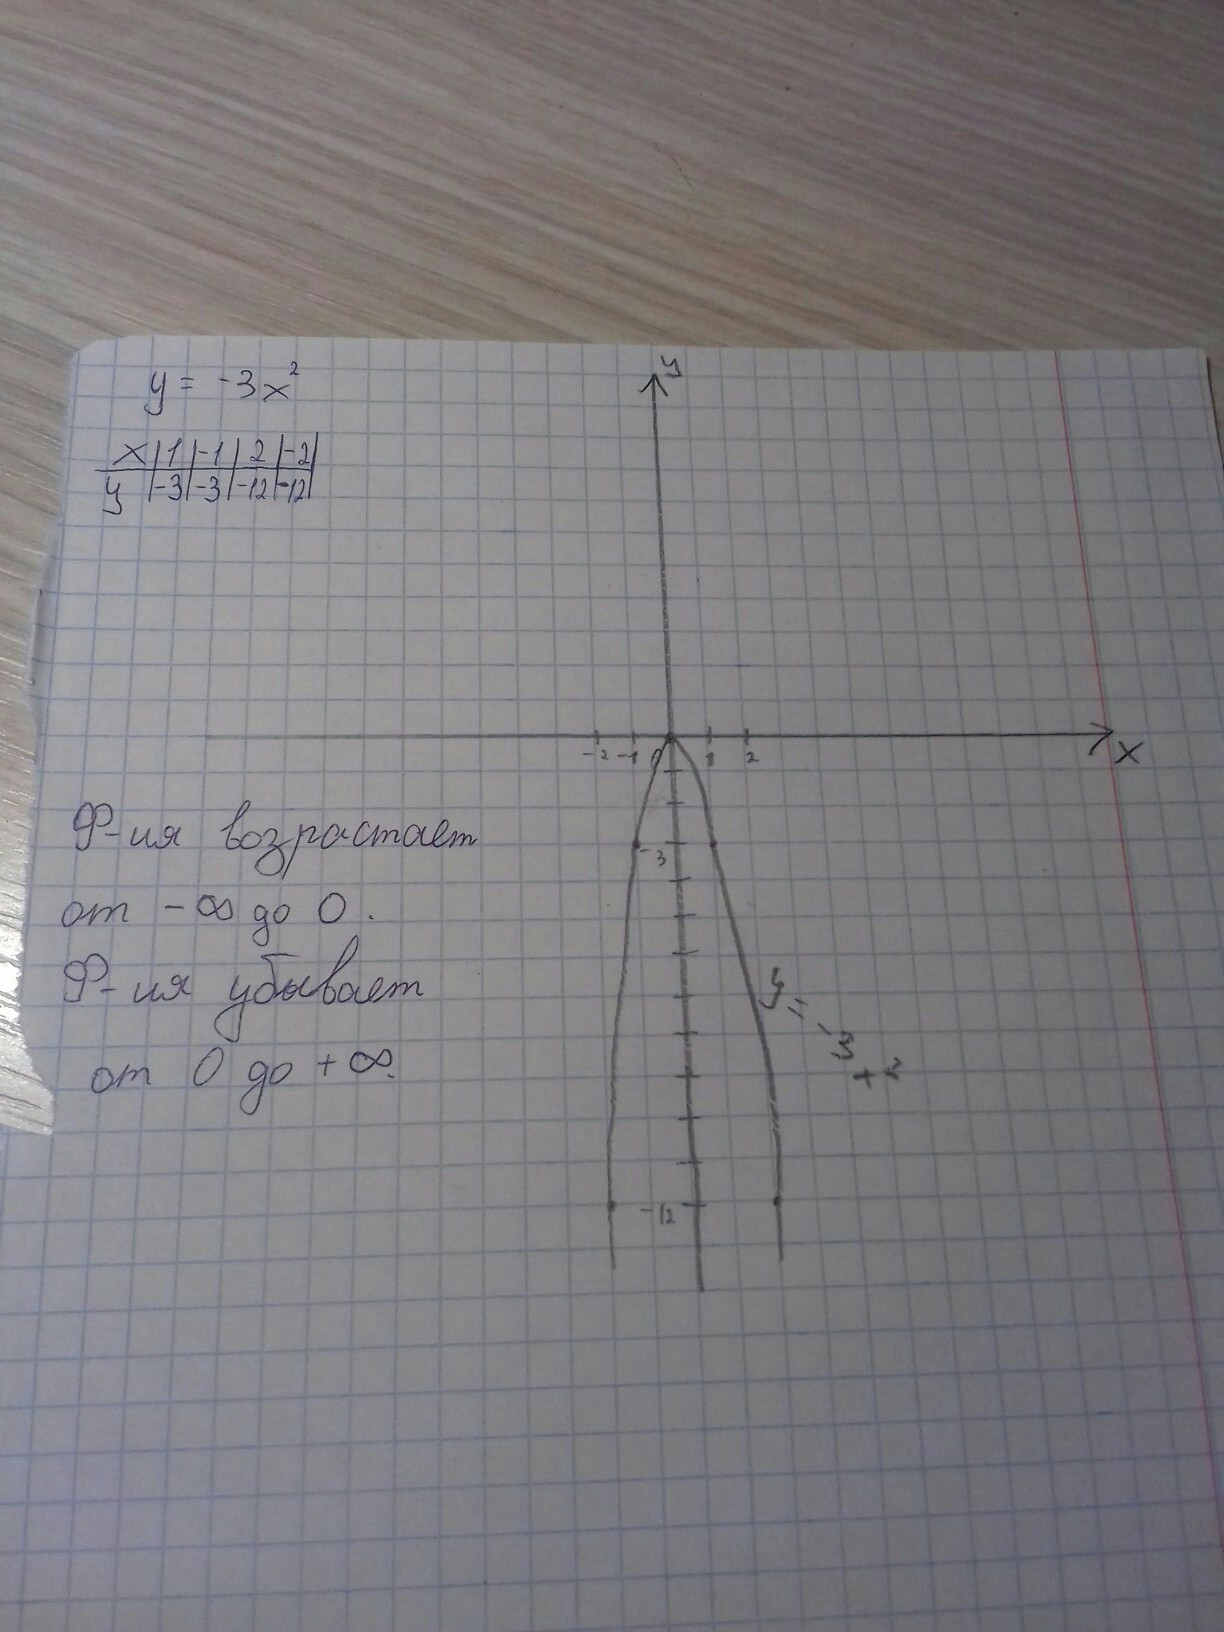 y = -3x²
x | 1 | -1 | 2 | -2 |
y | -3 | -3 | -12 | -12 |
y
-2 -1 0 1 2 x
Ф-ия возрастает
-3
от -∞ до 0.
Ф-ия убывает
y = -3x²
от 0 до +∞.
-12